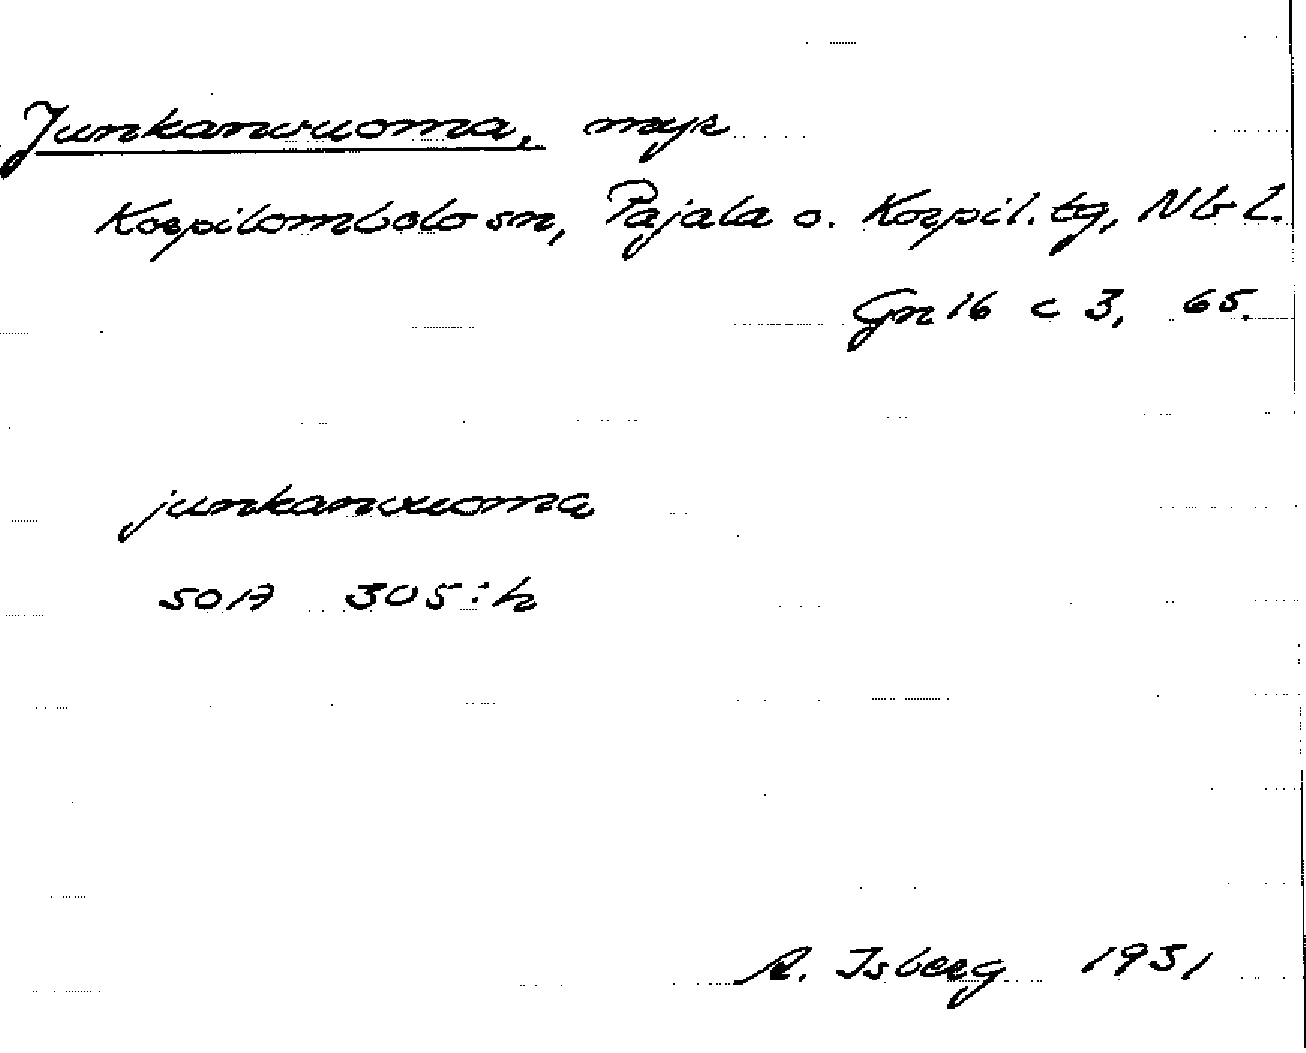 Junkanvuoma, myr
Korpilombolo sn, Pajala o. Korpil. tg, Nb l.
Gn 16 c 3, 65.
junkanvuoma
SOA 305:h
A. Isberg 1931